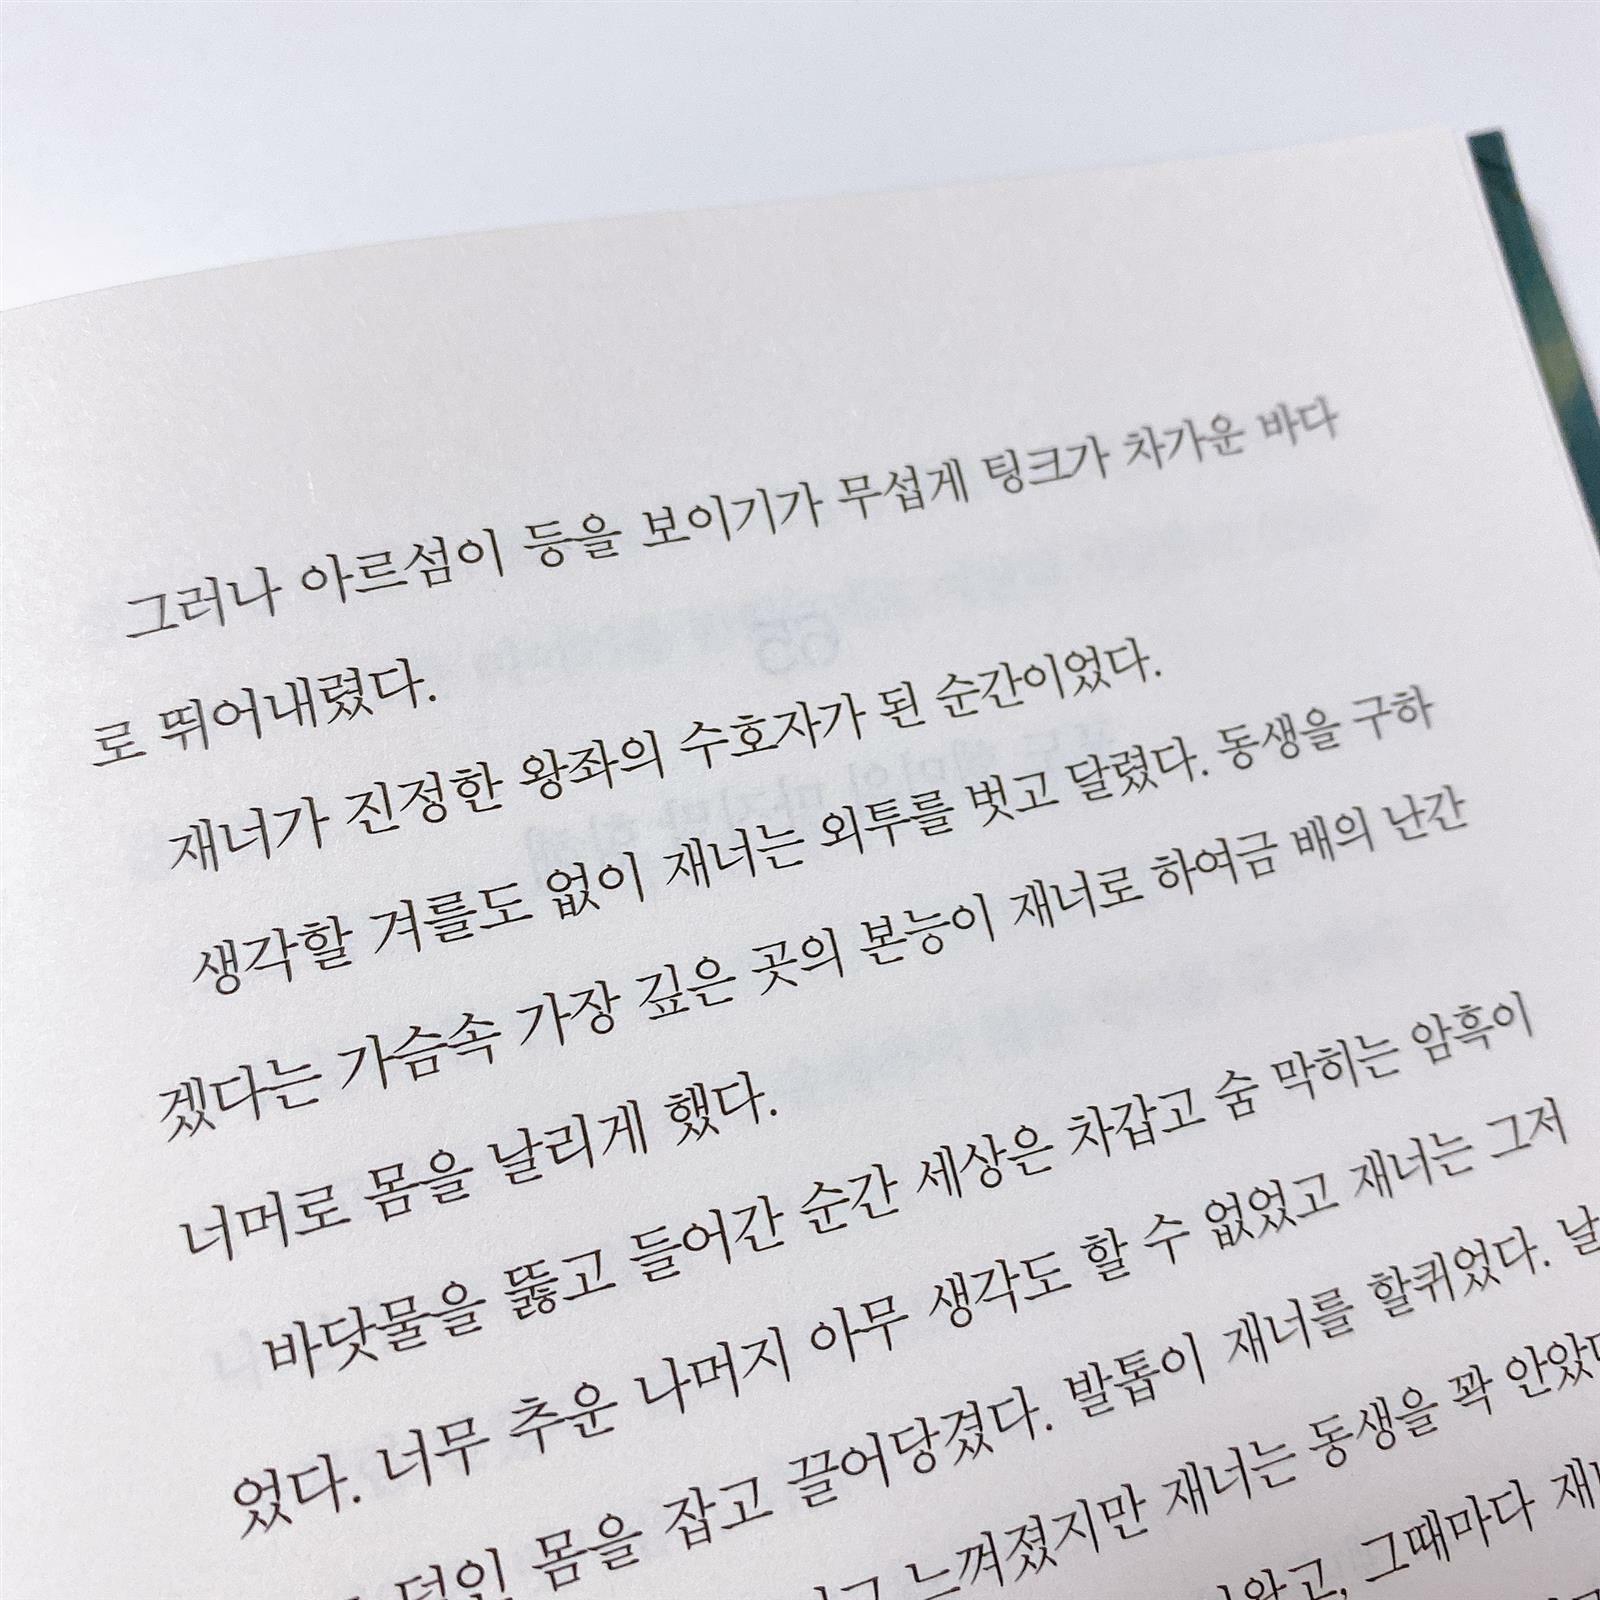 그러나 아르섬이 등을 보이기가 무섭게 팅크가 차가운 바다
로 뛰어내렸다.
재너가 진정한 왕좌의 수호자가 된 순간이었다.
생각할 겨를도 없이 재너는 외투를 벗고 달렸다. 동생을 구하
겠다는 가슴속 가장 깊은 곳의 본능이 재너로 하여금 배의 난간
너머로 몸을 날리게 했다.
바닷물을 뚫고 들어간 순간 세상은 차갑고 숨 막히는 암흑이
었다. 너무 추운 나머지 아무 생각도 할 수 없었고 재너는 그저
덮인 몸을 잡고 끌어당겼다. 발톱이 재너를 할퀴었다. 날
느껴졌지만 재너는 동생을 꽉 안았
그때마다